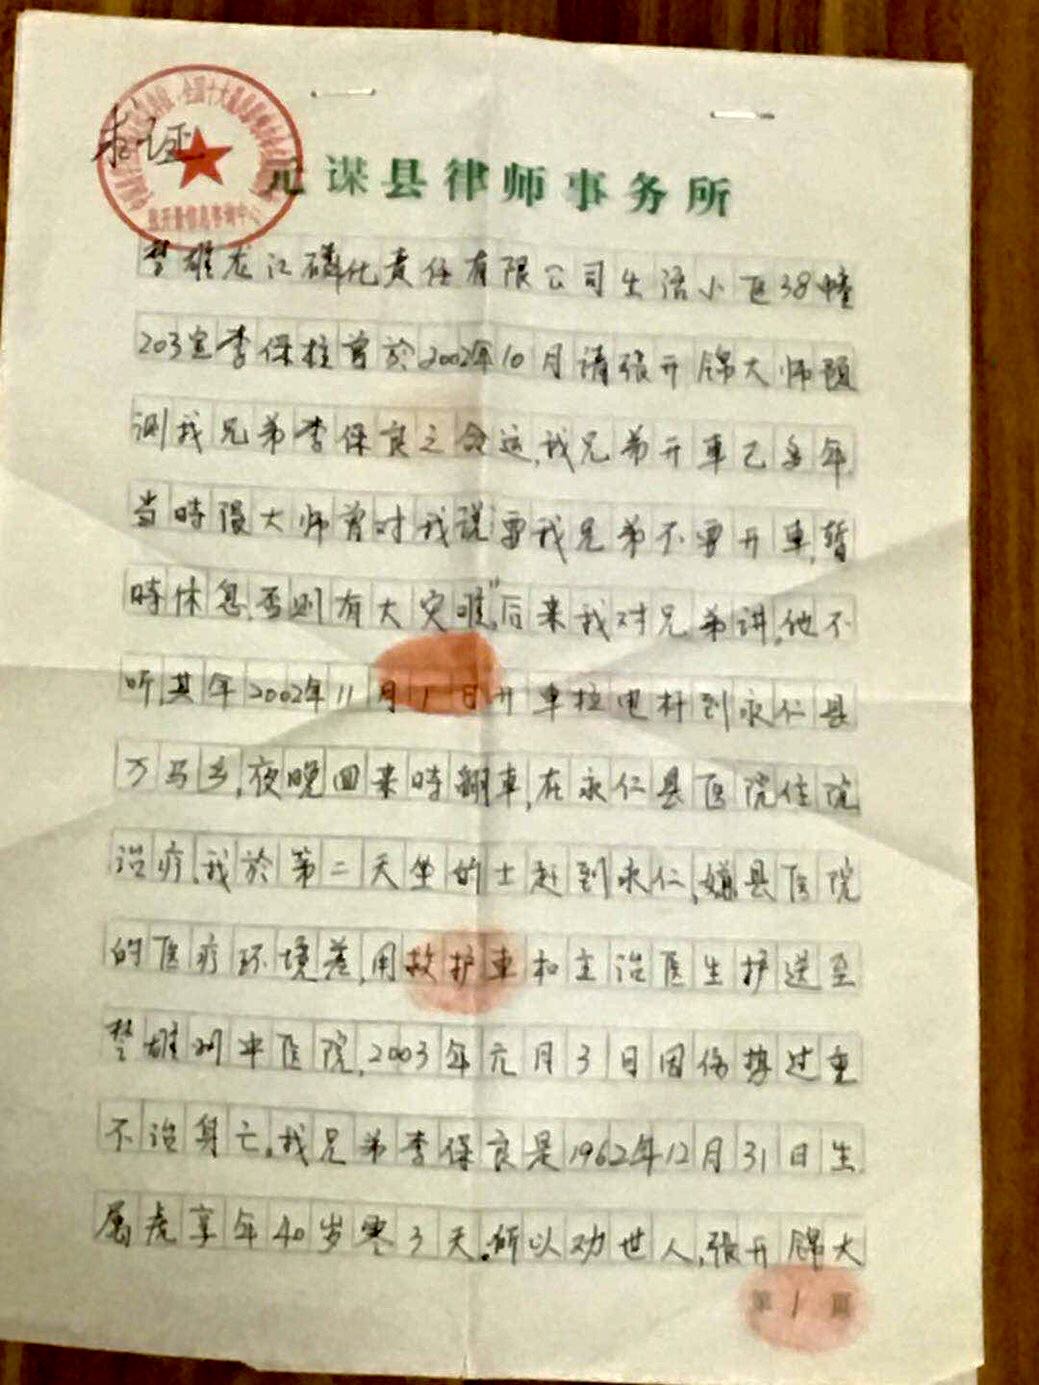 元谋县律师事务所
楚雄龙江磷化责任有限公司生活小区38幢
203室李保柱曾於2002年10月请张开锦大师预
测我兄弟李保良之命运,我兄弟开車已多年
当時张大师曾对我说"要我兄弟不要开車,暂
時休息,否则有大灾难"后来我对兄弟讲,他不
听其年2002年11月1日开車拉电杆到永仁县
万马乡,夜晚回来時翻車,在永仁县医院住院
治疗,我於第二天坐的士赶到永仁,嫌县医院
的医疗环境差,用救护車和主治医生护送至
楚雄州中医院,2003年元月3日因伤势过重
不治身亡。我兄弟李保良是1962年12月31日生
属虎享年40岁零3天。所以劝世人,张开锦大
第1页